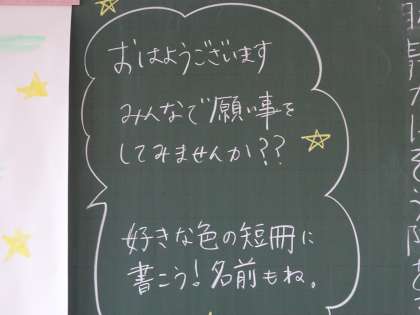 おはようございます
みんなで願い事を
してみませんか??
好きな色の短冊に
書こう!名前もね。